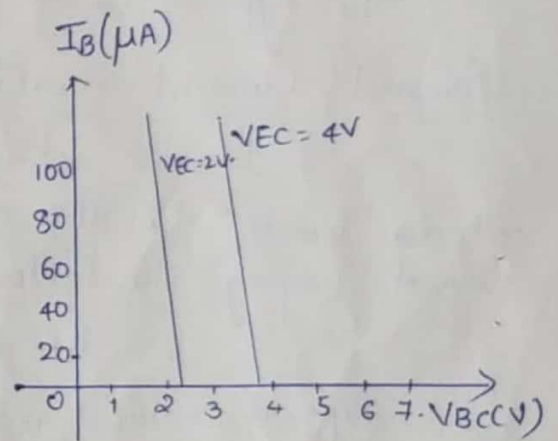 IB(μA)
VEC = 4V
VEC=2V.
100
80
60
40
20
0 1 2 3 4 5 6 7. VBC(V)